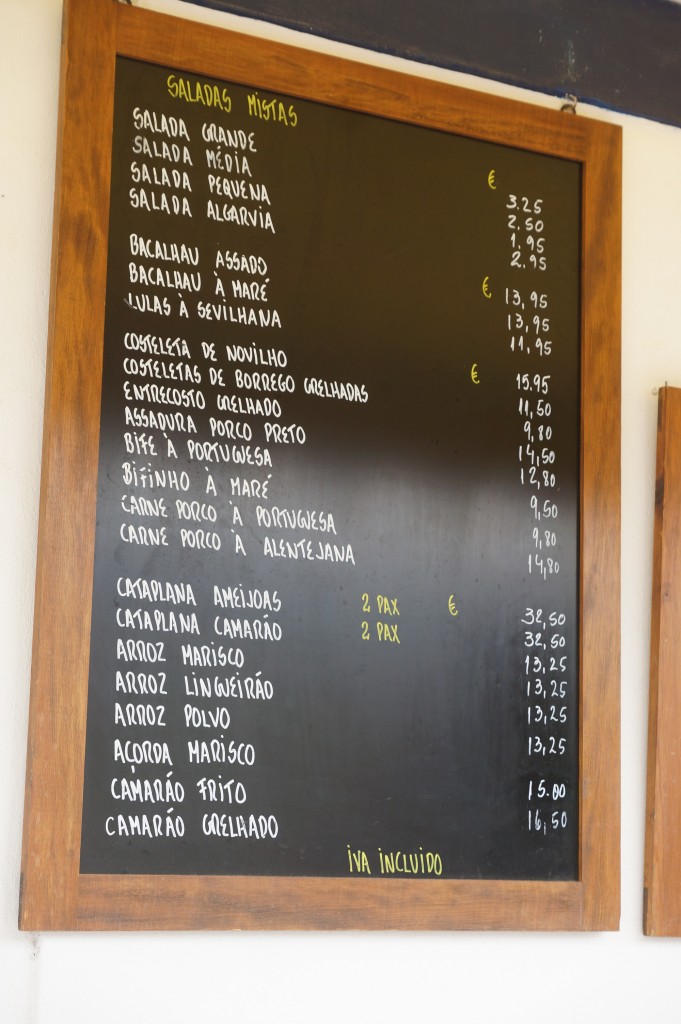 SALADAS MISTAS
SALADA GRANDE € 3.25
SALADA MÉDIA 2.50
SALADA PEQUENA 1.95
SALADA ALGARVIA 2.95
BACALHAU ASSADO € 13,95
BACALHAU À MARÉ 13,95
LULAS À SEVILHANA 11,95
COSTELETA DE NOVILHO € 15.95
COSTELETAS DE BORREGO GRELHADAS 11,50
ENTRECOSTO GRELHADO 9,80
ASSADURA PORCO PRETO 14,50
BIFE À PORTUGUESA 12,80
BIFINHO À MARÉ 9,50
CARNE PORCO À PORTUGUESA 9,80
CARNE PORCO À ALENTEJANA 14,80
CATAPLANA AMEIJOAS 2 PAX € 32,50
CATAPLANA CAMARÃO 2 PAX 32,50
ARROZ MARISCO 13,25
ARROZ LINGUEIRÃO 13,25
ARROZ POLVO 13,25
AÇORDA MARISCO 13,25
CAMARÃO FRITO 15.00
CAMARÃO GRELHADO 16,50
IVA INCLUIDO